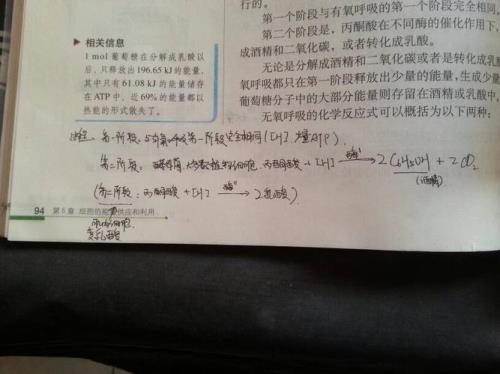 相关信息
1 mol 葡萄糖在分解成乳酸以
后，只释放出196.65 kJ的能量，
其中只有61.08 kJ的能量储存
在ATP中，近69%的能量都以
热能的形式散失了。
行的。
第一个阶段与有氧呼吸的第一个阶段完全相同。
第二个阶段是，丙酮酸在不同酶的催化作用下，
成酒精和二氧化碳，或者转化成乳酸。
无论是分解成酒精和二氧化碳或者是转化成乳酸
氧呼吸都只在第一阶段释放出少量的能量，生成少量
葡萄糖分子中的大部分能量则存留在酒精或乳酸中。
无氧呼吸的化学反应式可以概括为以下两种：
第一阶段：与有氧呼吸第一阶段完全相同（[H]、少量ATP）.
第二阶段：酵母菌、丙酮酸 + [H] 酶 → 2C₂H₅OH + 2CO₂
（酒精）
（第二阶段：丙酮酸 + [H] 酶 → 2乳酸）
94 第5章 细胞的能量供应和利用